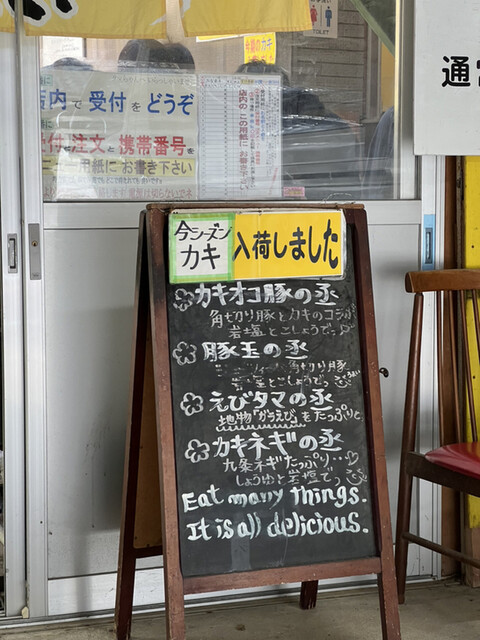 TOILET
店内で受付をどうぞ
注文と携帯番号を
用紙にお書き下さい
店内の この用紙に
通常
今シーズン
カキ
入荷しました
カキオコ豚の丞
角切り豚とカキのコラボ
岩塩とこしょうでっ
豚玉の丞
角切り豚
岩塩とこしょうでっ
えびタマの丞
地物「ガラえび」をたっぷりと
カキネギの丞
九条ネギたっぷり…♡
しょうゆと岩塩でっ
Eat many things.
It is all delicious.